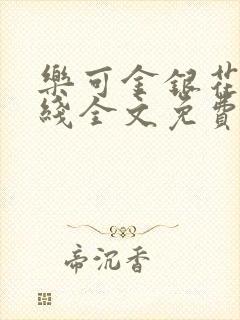 樂可金銀花
綫全文免費
帝沉香